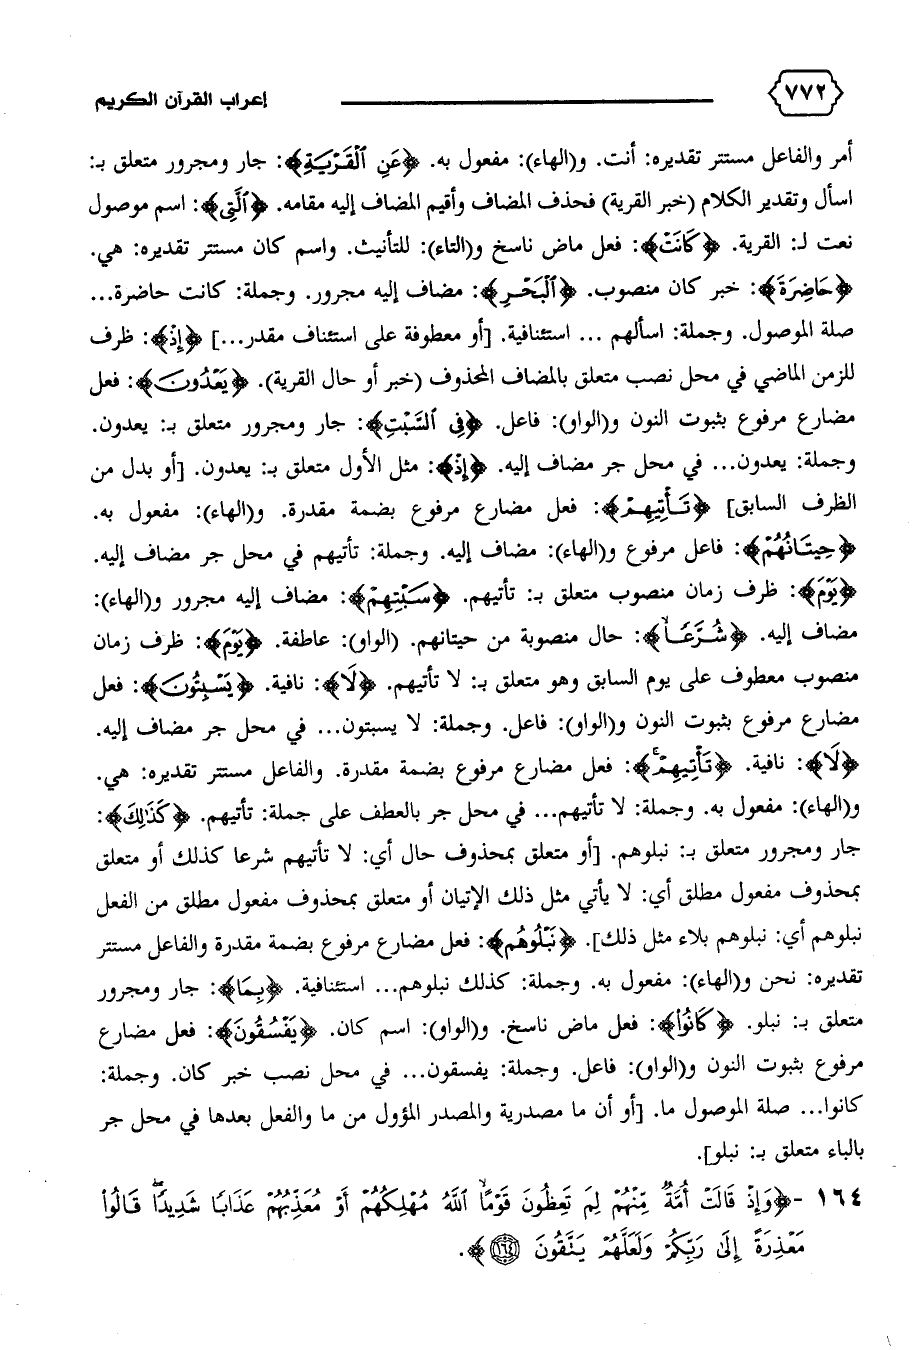 إعراب القرآن الكريم ٧٧٢
أمر والفاعل مستتر تقديره: أنت. و(الهاء): مفعول به. ﴿عَنِ ٱلْقَرْيَةِ﴾: جار ومجرور متعلق بـ:
اسأل وتقدير الكلام (خبر القرية) فحذف المضاف وأقيم المضاف إليه مقامه. ﴿ٱلَّتِى﴾: اسم موصول
نعت لـ: القرية. ﴿كَانَتْ﴾: فعل ماض ناسخ و(التاء): للتأنيث. واسم كان مستتر تقديره: هي.
﴿حَاضِرَةَ﴾: خبر كان منصوب. ﴿ٱلْبَحْرِ﴾: مضاف إليه مجرور. وجملة: كانت حاضرة...
صلة الموصول. وجملة: اسألهم ... استئنافية. [أو معطوفة على استئناف مقدر...] ﴿إِذْ﴾: ظرف
للزمن الماضي في محل نصب متعلق بالمضاف المحذوف (خبر أو حال القرية). ﴿يَعْدُونَ﴾: فعل
مضارع مرفوع بثبوت النون و(الواو): فاعل. ﴿فِى ٱلسَّبْتِ﴾: جار ومجرور متعلق بـ: يعدون.
وجملة: يعدون... في محل جر مضاف إليه. ﴿إِذْ﴾: مثل الأول متعلق بـ: يعدون. [أو بدل من
الظرف السابق] ﴿تَأْتِيهِمْ﴾: فعل مضارع مرفوع بضمة مقدرة. و(الهاء): مفعول به.
﴿حِيتَانُهُمْ﴾: فاعل مرفوع و(الهاء): مضاف إليه. وجملة: تأتيهم في محل جر مضاف إليه.
﴿يَوْمَ﴾: ظرف زمان منصوب متعلق بـ: تأتيهم. ﴿سَبْتِهِمْ﴾: مضاف إليه مجرور و(الهاء):
مضاف إليه. ﴿شُرَّعًاۙ﴾: حال منصوبة من حيتانهم. (الواو): عاطفة. ﴿يَوْمَ﴾: ظرف زمان
منصوب معطوف على يوم السابق وهو متعلق بـ: لا تأتيهم. ﴿لَا﴾: نافية. ﴿يَسْبِتُونَ﴾: فعل
مضارع مرفوع بثبوت النون و(الواو): فاعل. وجملة: لا يسبتون... في محل جر مضاف إليه.
﴿لَا﴾: نافية. ﴿تَأْتِيهِمْۚ﴾: فعل مضارع مرفوع بضمة مقدرة. والفاعل مستتر تقديره: هي.
و(الهاء): مفعول به. وجملة: لا تأتيهم... في محل جر بالعطف على جملة: تأتيهم. ﴿كَذَٰلِكَ﴾:
جار ومجرور متعلق بـ: نبلوهم. [أو متعلق بمحذوف حال أي: لا تأتيهم شرعا كذلك أو متعلق
بمحذوف مفعول مطلق أي: لا يأتي مثل ذلك الإتيان أو متعلق بمحذوف مفعول مطلق من الفعل
نبلوهم أي: نبلوهم بلاء مثل ذلك]. ﴿نَبْلُوهُم﴾: فعل مضارع مرفوع بضمة مقدرة والفاعل مستتر
تقديره: نحن و(الهاء): مفعول به. وجملة: كذلك نبلوهم... استئنافية. ﴿بِمَا﴾: جار ومجرور
متعلق بـ: نبلو. ﴿كَانُوا۟﴾: فعل ماض ناسخ. و(الواو): اسم كان. ﴿يَفْسُقُونَ﴾: فعل مضارع
مرفوع بثبوت النون و(الواو): فاعل. وجملة: يفسقون... في محل نصب خبر كان. وجملة:
كانوا... صلة الموصول ما. [أو أن ما مصدرية والمصدر المؤول من ما والفعل بعدها في محل جر
بالباء متعلق بـ: نبلو].
١٦٤ -﴿وَإِذْ قَالَتْ أُمَّةٌ مِّنْهُمْ لِمَ تَعِظُونَ قَوْمًاۙ ٱللَّهُ مُهْلِكُهُمْ أَوْ مُعَذِّبُهُمْ عَذَابًا شَدِيدًاۖ قَالُوا۟
مَعْذِرَةً إِلَىٰ رَبِّكُمْ وَلَعَلَّهُمْ يَتَّقُونَ ﴿١٦٤﴾﴾.